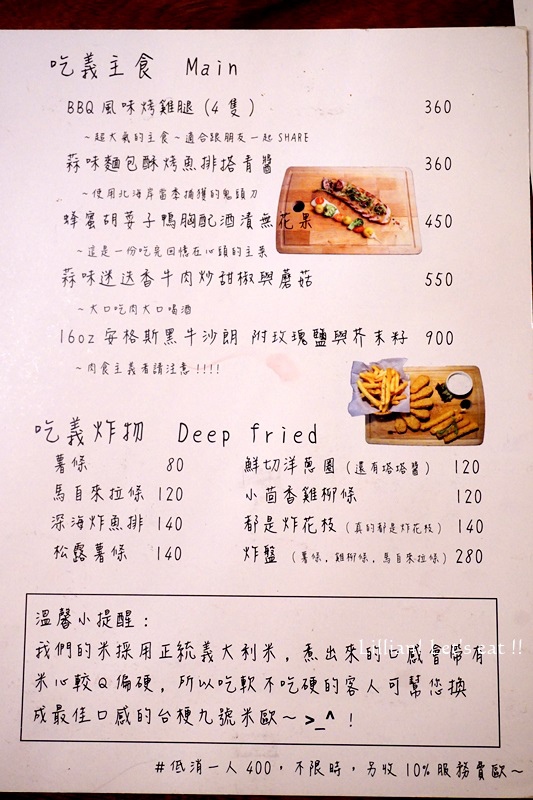 吃義主食 Main
BBQ風味烤雞腿 (4隻) 360
～超大氣的主食～適合跟朋友一起SHARE
蒜味麵包酥烤魚排搭青醬 360
～使用北海岸當季捕獲的鬼頭刀
蜂蜜胡荽子鴨胸配酒漬無花果 450
～這是一份吃完回憶在心頭的主菜
蒜味迷迭香牛肉炒甜椒與蘑菇 550
～大口吃肉大口喝酒
16oz 安格斯黑牛沙朗 附玫瑰鹽與芥末籽 900
～肉食主義者請注意!!!!
吃義炸物 Deep fried
薯條 80 鮮切洋蔥圈 (還有塔塔醬) 120
馬自來拉條 120 小茴香雞柳條 120
深海炸魚排 140 都是炸花枝 (真的都是炸花枝) 140
松露薯條 140 炸盤 (薯條,雞柳條,馬自來拉條) 280
溫馨小提醒：
我們的米採用正統義大利米，煮出來的口感會帶有
米心較Q偏硬，所以吃軟不吃硬的客人可幫您換
成最佳口感的台梗九號米歐～ >_^ !
#低消一人400，不限時，另收10%服務費歐～